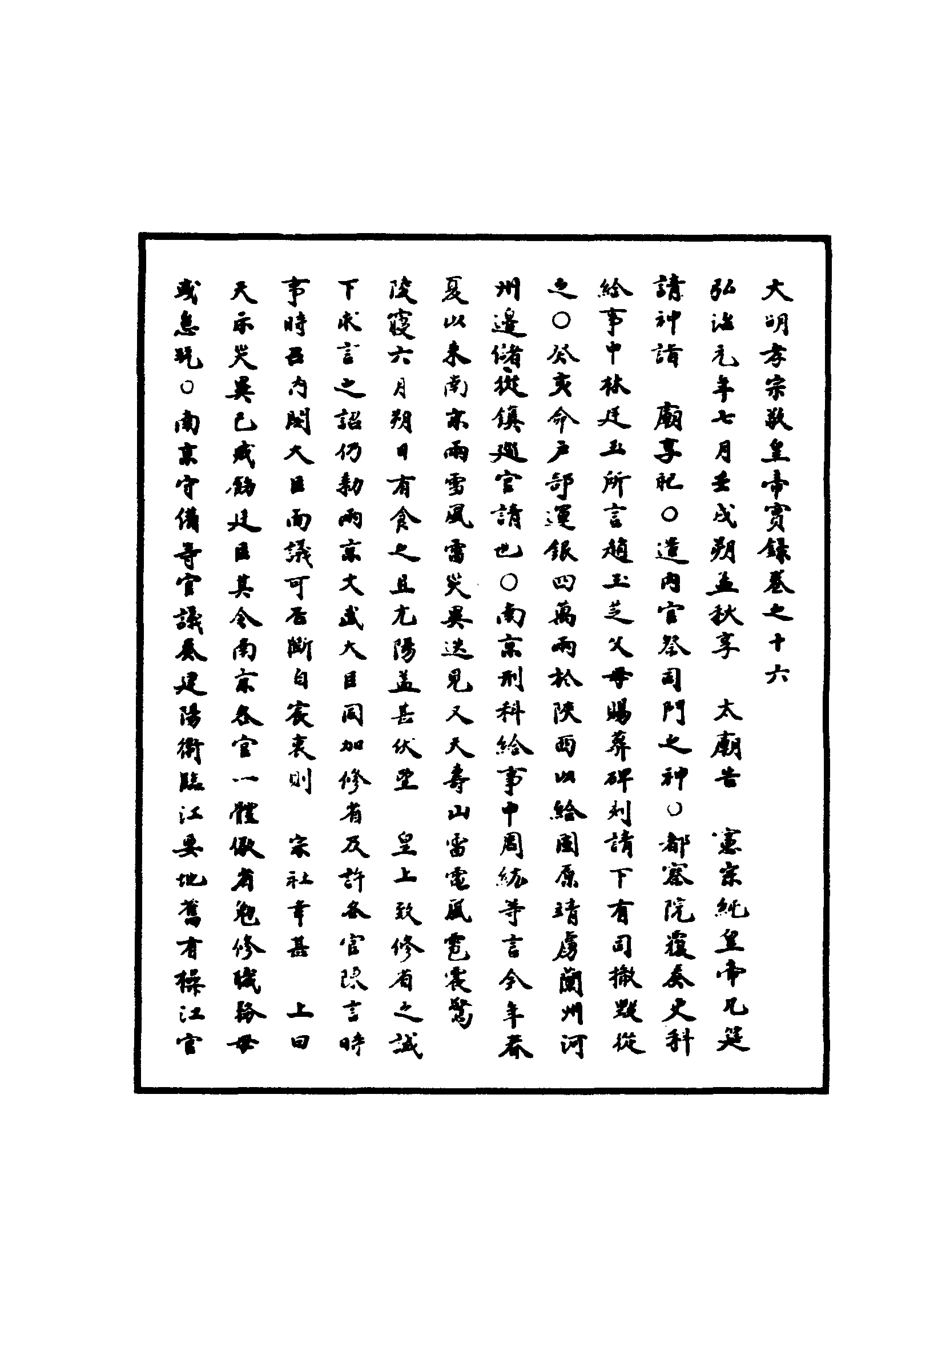 大明孝宗敬皇帝實錄卷之十六
弘治元年七月壬戌朔孟秋享　太廟告　憲宗純皇帝几筵
請神詣　廟享祀○遣內官祭司門之神○都察院覆奏吏科
給事中林廷玉所言趙玉芝父母賜葬碑刻請下有司撤毀從
之○癸亥命戶部運銀四萬兩於陝西以給固原靖虜蘭州河
州邊儲從鎮巡官請也○南京刑科給事中周紘等言今年春
夏以來南京雨雪風雷災異迭見又天壽山雷電風雹震驚
陵寢六月朔日有食之且亢陽益甚伏望　皇上致修省之誠
下求言之詔仍勅兩京文武大臣同加修省及許各官陳言時
事時召內閣大臣面議可否斷自宸衷則　宗社幸甚　上曰
天示災異已戒飭廷臣其令南京各官一體儆省勉修職務毋
或怠玩○南京守備等官議奏建陽衛臨江要地舊有操江官